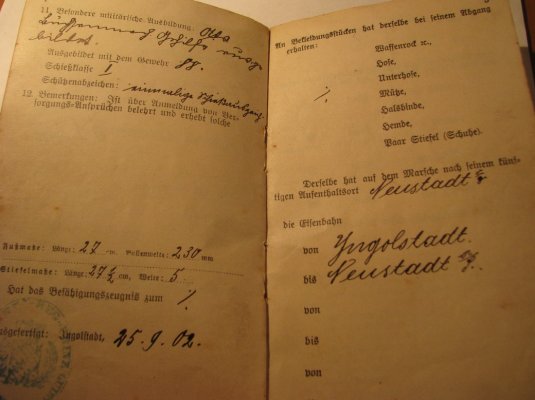 11. Besondere militärische Ausbildung: Als
Büchsenmacher Gehilfe ausge
bildet.
Ausgebildet mit dem Gewehr 88.
Schießklasse I
Schützenabzeichen: einmalige
12. Bemerkungen: Ist über Anmeldung von Ver-
sorgungs-Ansprüchen belehrt und erhebt solche
Fußmaße: Länge: 27 cm, Ballenweite: 230 mm
Stiefelmaße: Länge: 27½ cm, Weite: 5
Hat das Befähigungszeugnis zum %
Ausgefertigt: Ingolstadt, 25. 9. 02.
An Bekleidungsstücken hat derselbe bei seinem Abgang
erhalten:
Waffenrock ꝛc.,
Hose,
Unterhose,
%
Mütze,
Halsbinde,
Hemde,
Paar Stiefel (Schuhe).
Derselbe hat auf dem Marsche nach seinem künf-
tigen Aufenthaltsort Neustadt
die Eisenbahn
von Yngolstadt.
bis Neustadt
von
bis
von